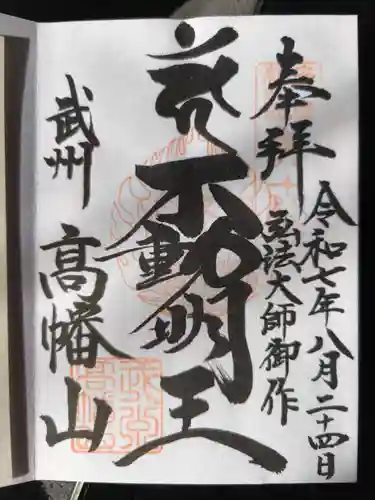 奉拝
令和七年八月二十四日
弘法大師御作
不動明王
武州
高幡山